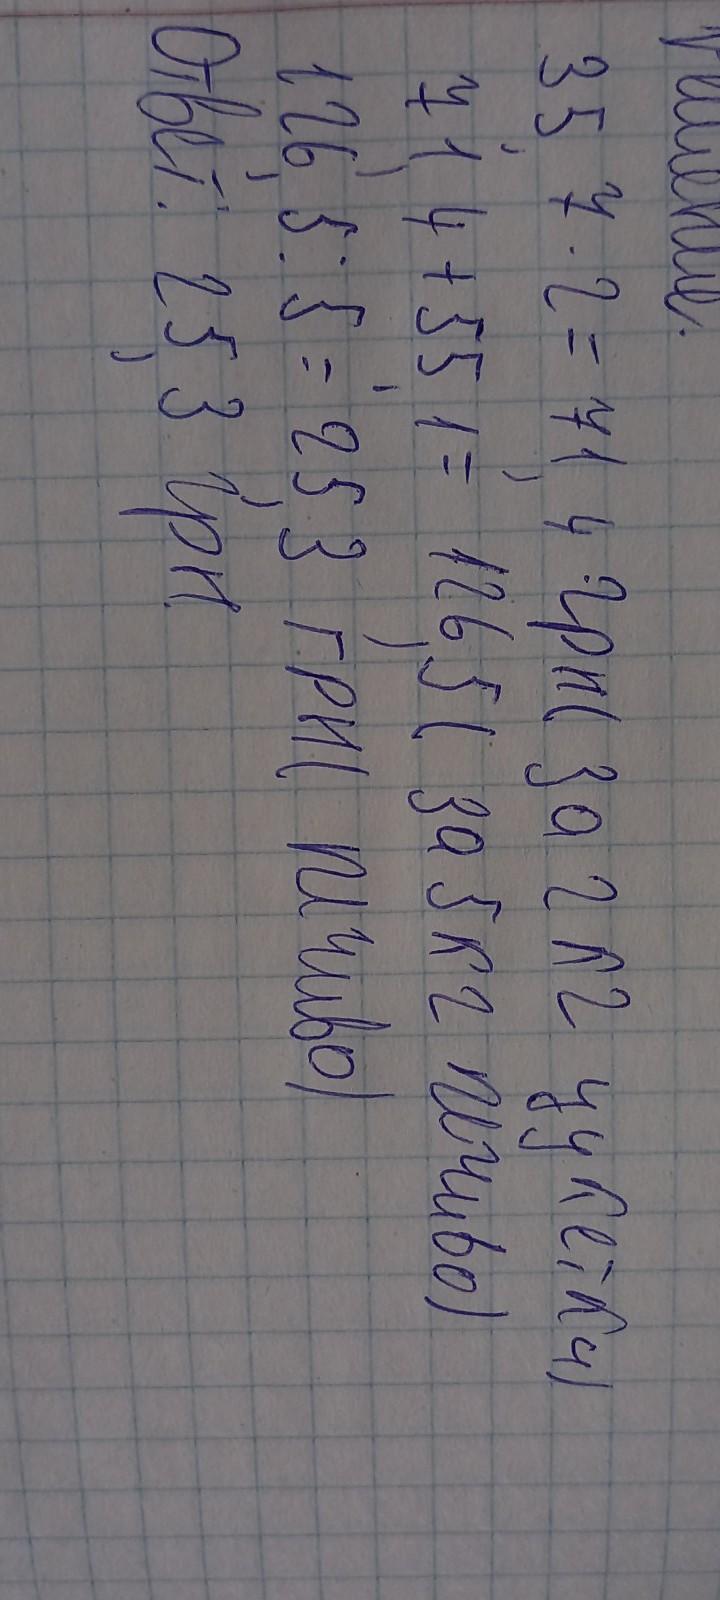 Решение.
35,7·2=71,4 грн(за 2 кг цукетки)
71,4+55,1=126,5(за 5 кг печиво)
126,5:5=25,3 грн(печиво)
Ответ: 25,3 грн.